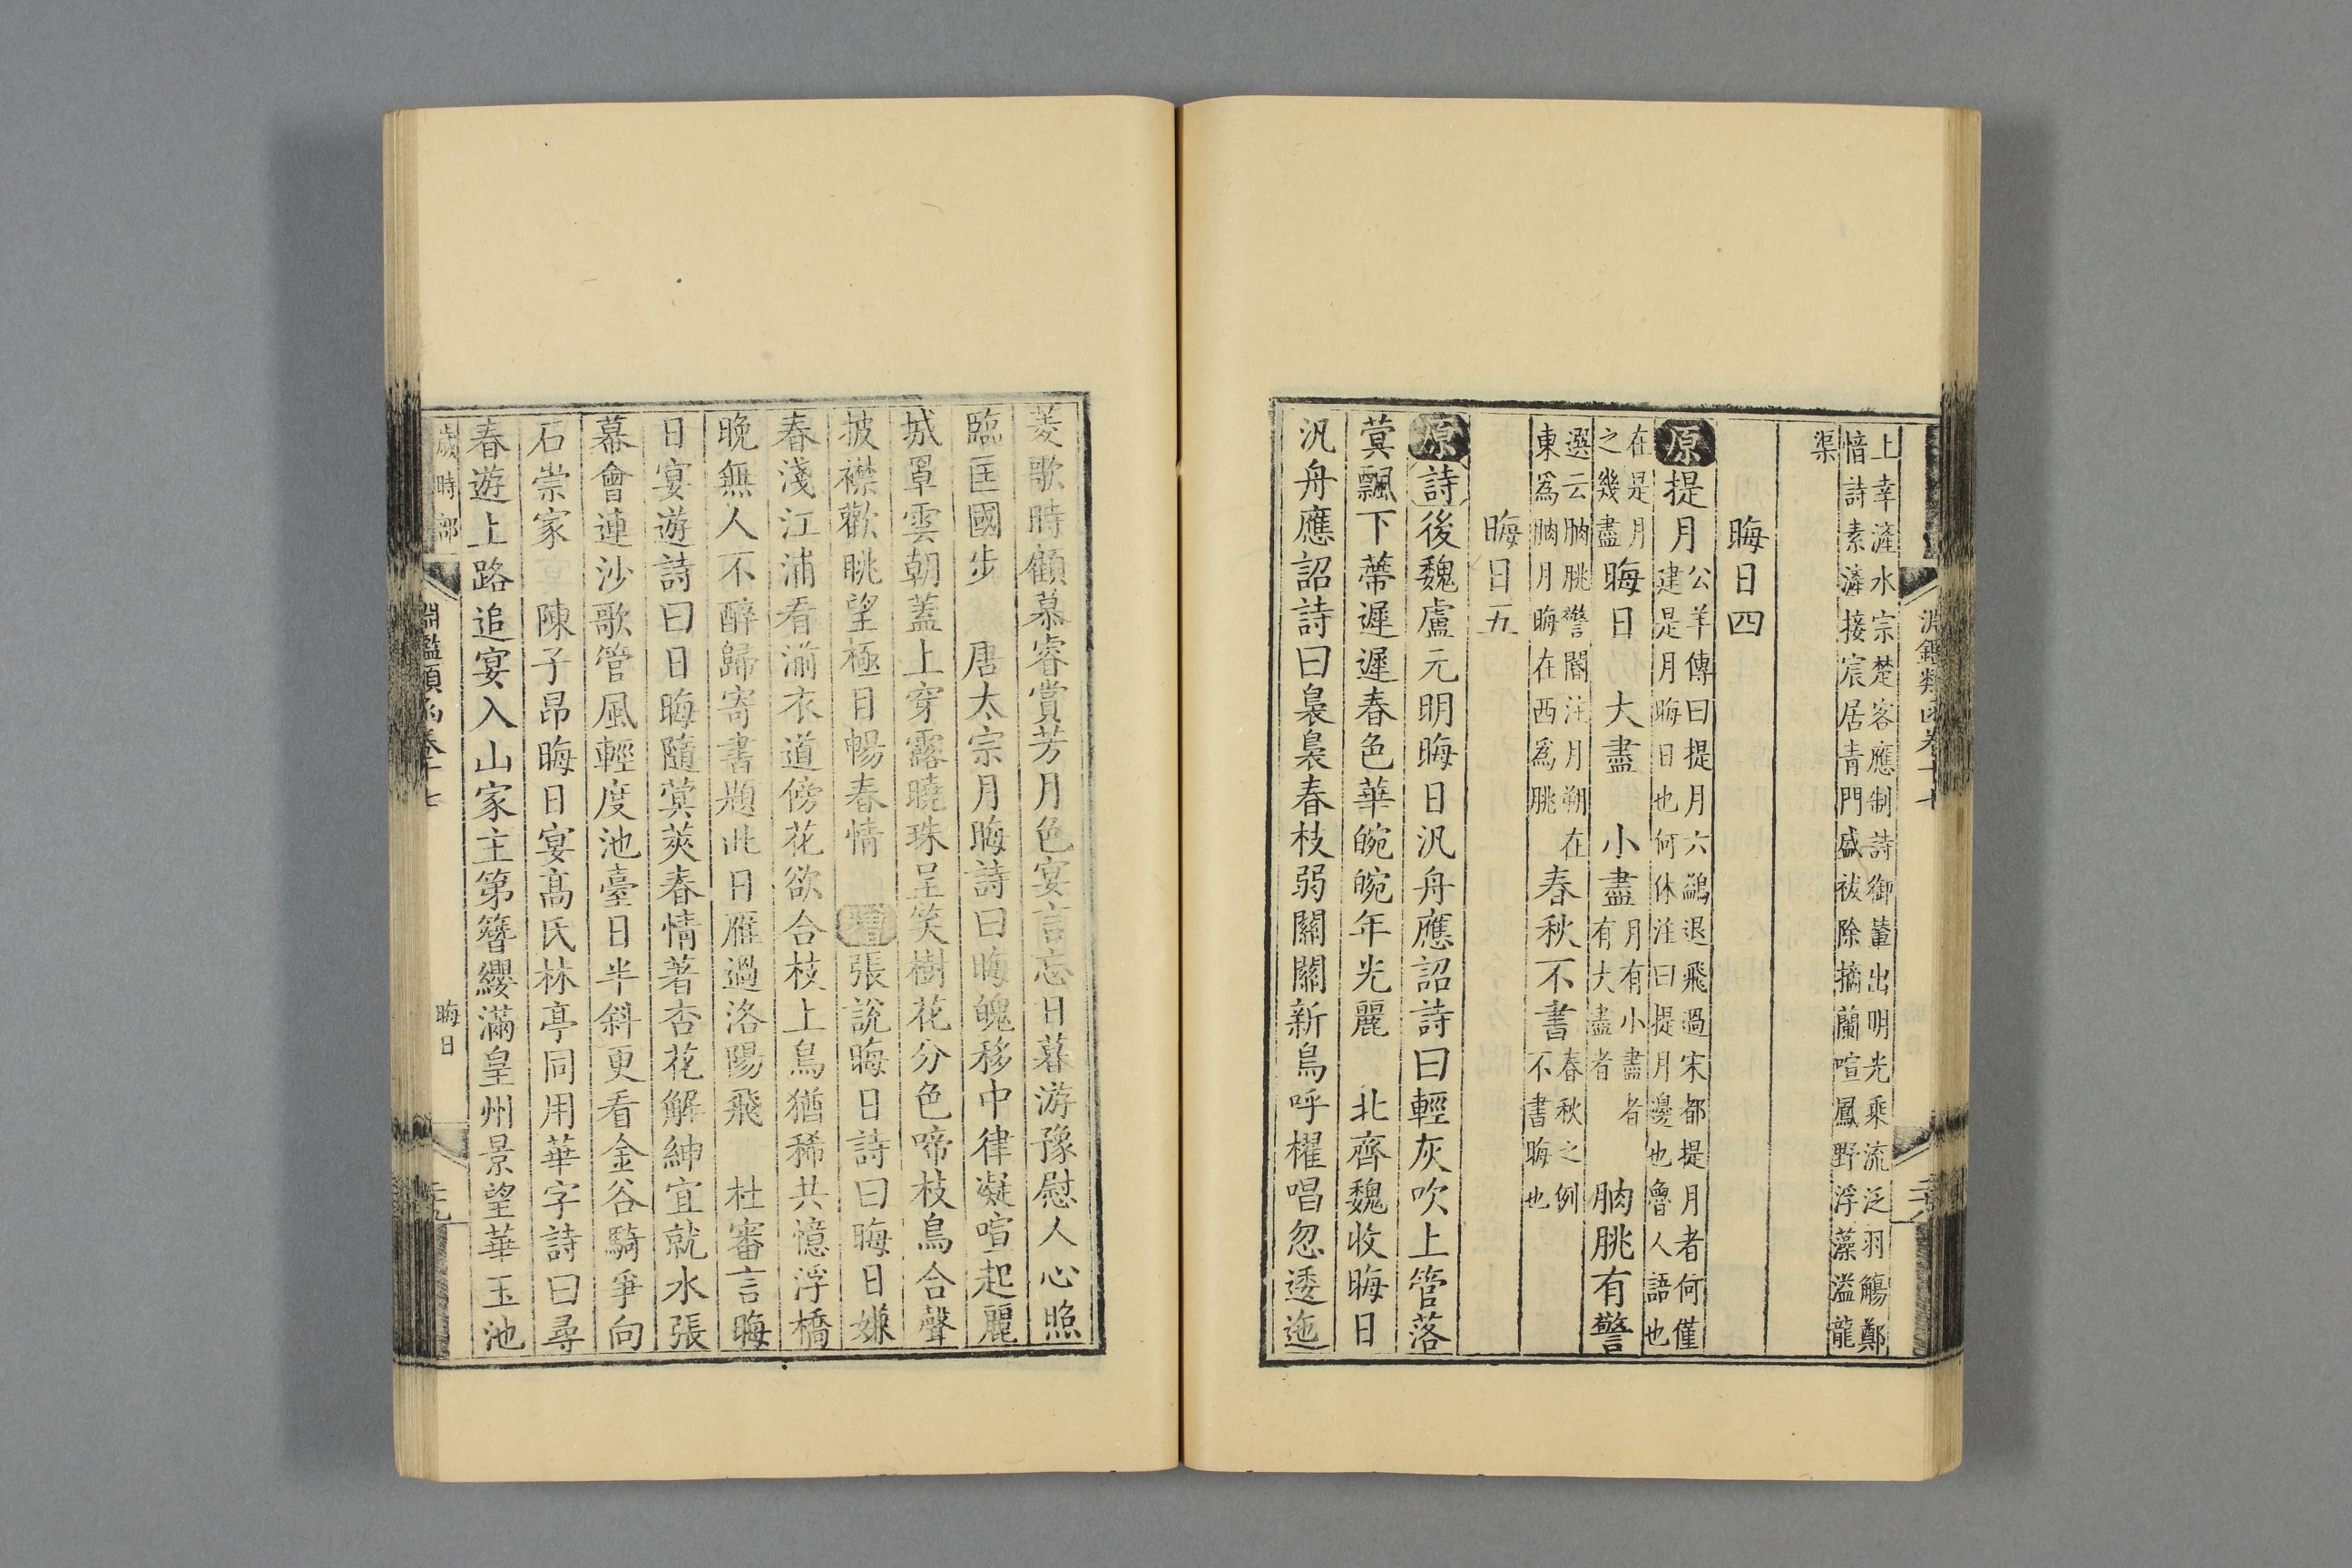 上幸滻水宗楚客應制詩御輦出明光乘流泛羽觴鄭
愔詩素滻接宸居青門盛祓除摘蘭喧鳳野浮藻溢龍
渠
晦日四
原提月公羊傳曰提月六鷁退飛過宋都提月者何僅
建是月晦日也何休注曰提月邊也魯人語也
在是月
之幾盡晦日 大盡 小盡月有小盡者
有大盡者 朒朓有警
選云朒朓警闕注月朔在
東爲朒月晦在西爲朓春秋不書春秋之例
不書晦也
晦日五
原詩後魏盧元明晦日汎舟應詔詩曰輕灰吹上管落
蓂飄下蔕遲遲春色華晼晼年光麗 北齊魏收晦日
汎舟應詔詩曰裊裊春枝弱關關新鳥呼櫂唱忽逶迤
菱歌時顧慕睿賞芳月色宴言忘日暮游豫慰人心照
臨匡國步 唐太宗月晦詩曰晦魄移中律凝喧起麗
城罩雲朝蓋上穿露曉珠呈笑樹花分色啼枝鳥合聲
披襟歡眺望極目暢春情 增張說晦日詩曰晦日嫌
春淺江浦看湔衣道傍花欲合枝上鳥猶稀共憶浮橋
晚無人不醉歸寄書題此日雁過洛陽飛 杜審言晦
日宴遊詩曰日晦隨蓂莢春情著杏花解紳宜就水張
幕會連沙歌管風輕度池臺日半斜更看金谷騎爭向
石崇家 陳子昂晦日宴高氏林亭同用華字詩曰尋
春遊上路追宴入山家主第簪纓滿皇州景望華玉池
歲時部 淵鑑類函卷十七 晦日